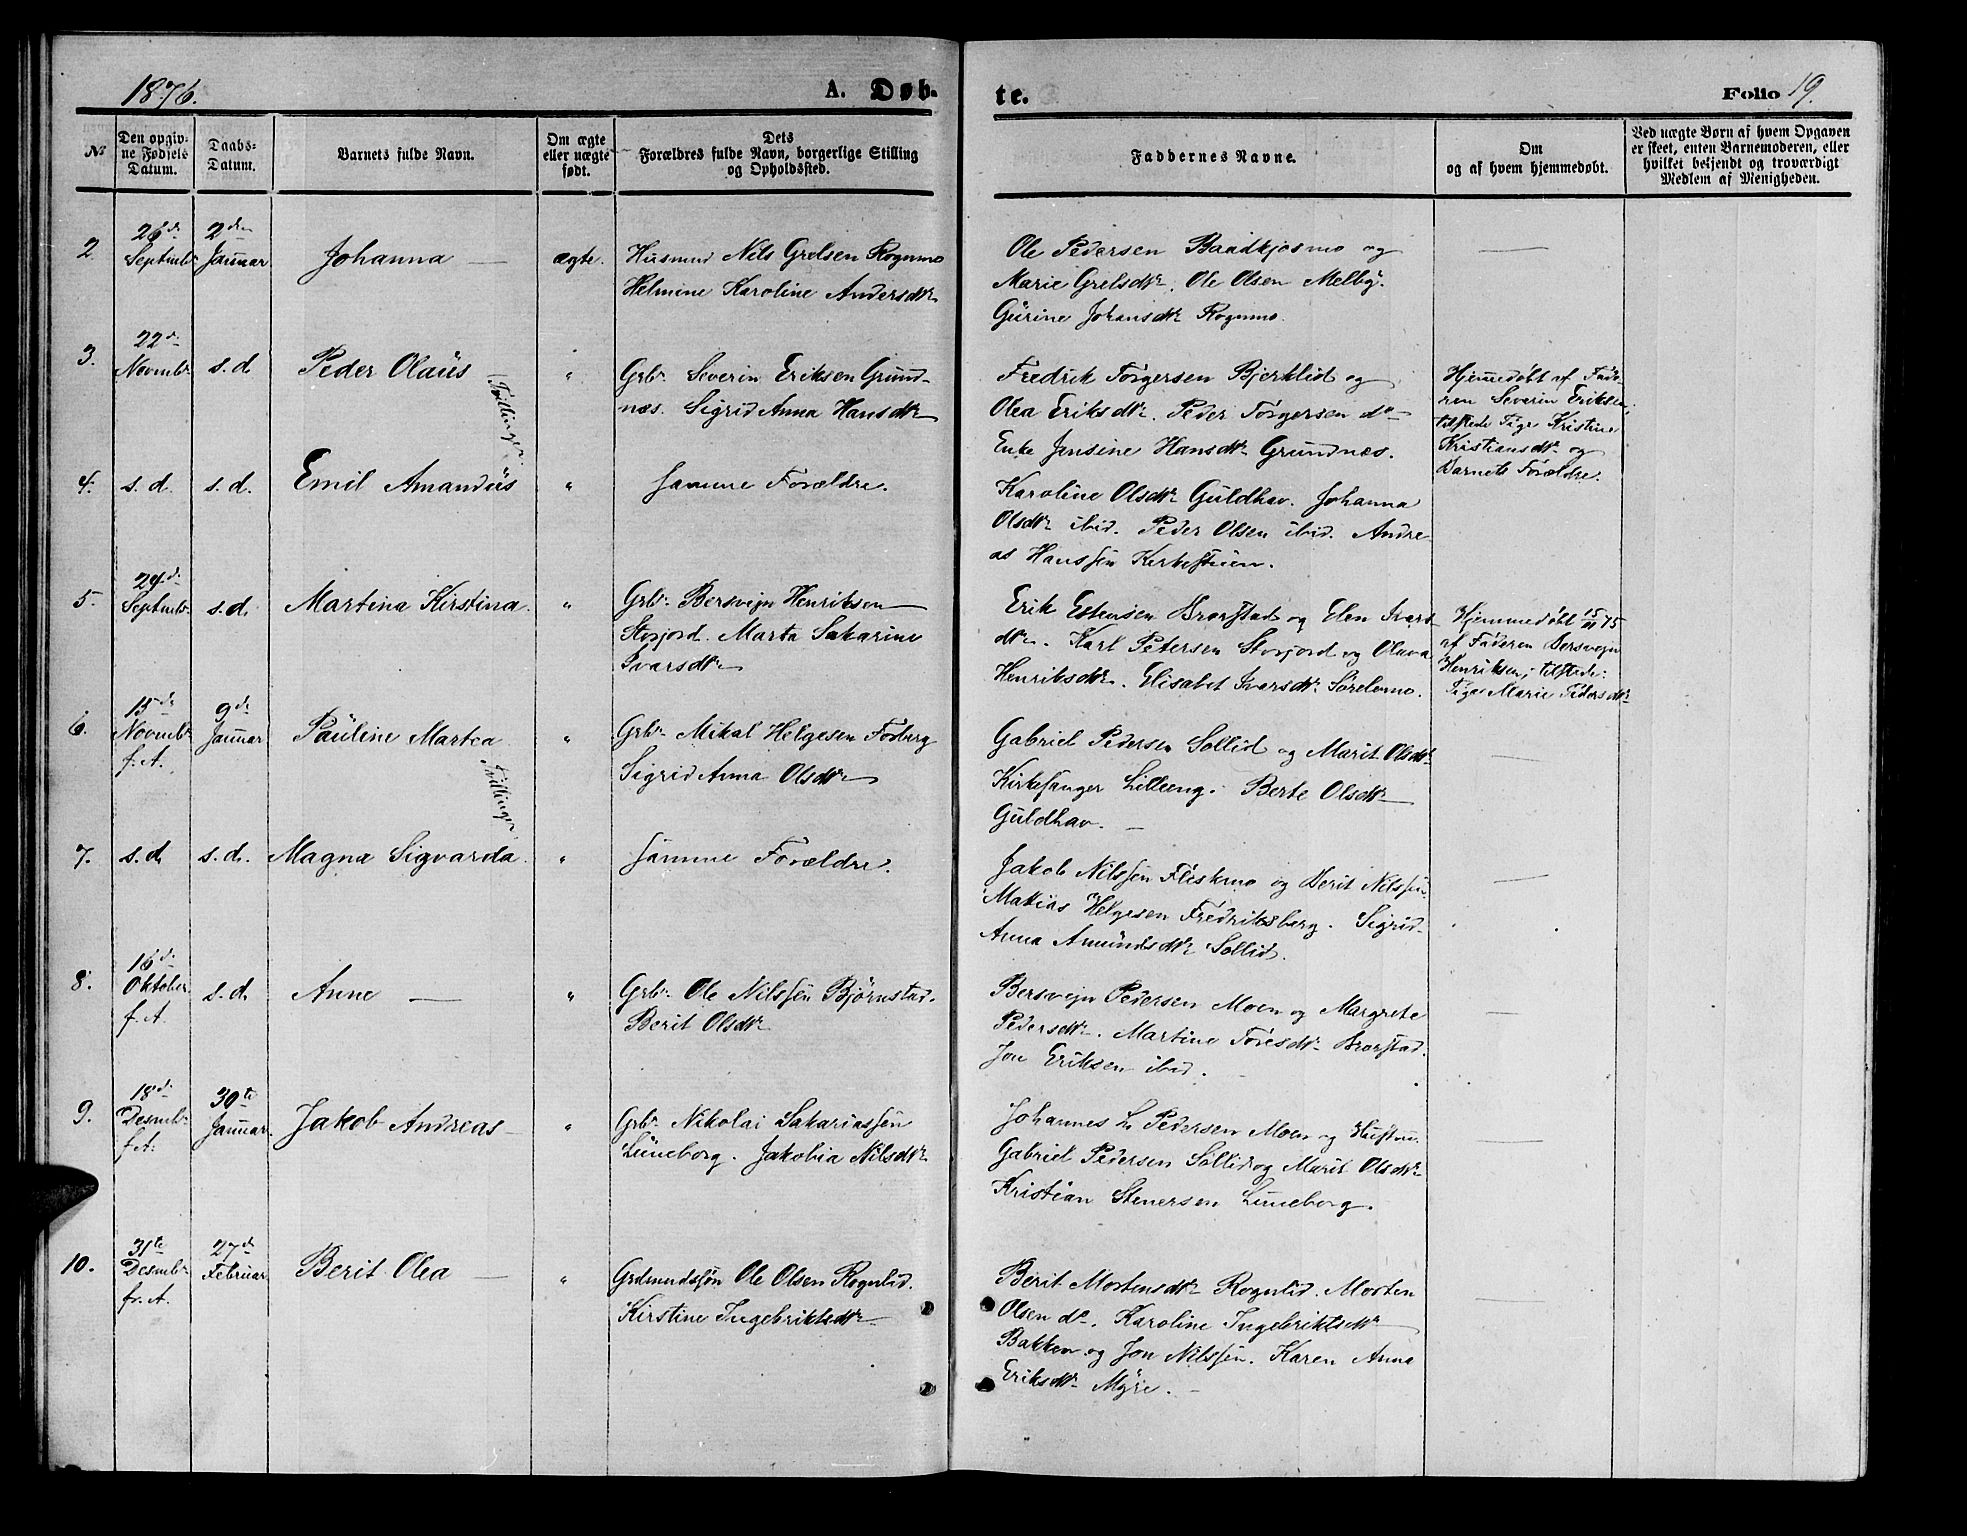 1876.
A. Døb-
te.
Folio 19.
No
Den opgiv-
ne Fødsels
Datum.
Daabs-
Datum.
Barnets fulde Navn.
Om ægte
eller uægte
født.
Dets
Forældres fulde Navn, borgerlige Stilling
og Opholdssted.
Faddernes Navne.
Om
og af hvem hjemmedøbt.
Ved uægte Børn af hvem Opgaven
er skeet, enten Barnemoderen, eller
hvilket bekjendt og troværdigt
Medlem af Menigheden.
2
26de
Septmbr
2den
Januar
Johanna —
ægte.
Husmnd Nils Grelsen Rognmo
Helmine Karoline Andersdtr
Ole Pedersen Baadkjosmo og
Marie Grelsdtr. Ole Olsen Melby.
Gurine Johansdtr Rognmo.
—
3.
22de
Novmbr
s. d.
Peder Olaus
(Tvillinger.
"
Grbr. Severin Eriksen Grund-
næs. Sigrid Anna Hansdtr
Fredrik Torgersen Bjerklid og
Olea Eriksdtr. Peder Torgersen do
Enke Jensine Hansdtr Grundnæs.
Hjemmedøbt af Fade-
ren Severin Eriksen;
tilstede Pige Kristine
Kristiansdtr og
Barnets Forældre.
4.
s. d.
s. d.
Emil Amandus
"
Samme Forældre.
Karoline Olsdtr Guldhav. Johanna
Olsdtr ibid. Peder Olsen ibid. Andre
as Hanssen Kirkestuen.
5.
24de
Septmbr
s. d.
Martina Kirstina.
"
Grbr. Bersvejn Henriksen
Storjord. Marta Sakarine
Ivarsdtr
Erik Estensen Brorstad og Elen Ivars
dtr. Karl Petersen Storjord og Olava
Henriksdtr. Elisabet Ivarsdtr Sørelvmo.
Hjemmedøbt 15/11 75
af Faderen Bersvejn
Henriksen; tilstede:
Pige Marie Pedersdtr
6.
15de
Novmbr
f. A.
9de
Januar
Pauline Martea
Tvillinger
"
Grbr. Mikal Helgesen Fosberg
Sigrid Anna Olsdtr
Gabriel Pedersen Sollid og Marit Olsdtr
Kirkesanger Lilleeng. Berte Olsdtr
Guldhav. —
—
7.
s. d.
s. d.
Magna Sigvarda.
"
Samme Forældre.
Jakob Nilssen Fleskmo og Berit Nilssen.
Matias Helgesen Fredriksberg. Sigrid
Anna Amundsdtr Sollid.
—
8.
16de
Oktober
f. A.
s. d.
Anne —
"
Grbr. Ole Nilssen Bjørnstad.
Berit Olsdtr
Bersvejn Pedersen Moen og Margrete
Pedersdtr. Martine Toresdtr Brorstad.
Jon Eriksen ibid.
—
9.
18de
Desmbr
f. A.
30te
Januar.
Jakob Andreas
"
Grbr. Nikolai Sakariassen
Luneborg. Jakobia Nilsdtr
Johannes L. Pedersen Moen og Hustru.
Gabriel Pedersen Sollid og Marit Olsdtr
Kristian Stenersen Luneborg.
—
10.
31te
Desmbr
fr. A.
27de
Februar
Berit Olea —
"
Grdmandssøn Ole Olsen Rognlid.
Kirstine Ingebriktsdtr
Berit Mortensdtr Rognlid. Morten
Olsen do. Karoline Ingebriktsdtr
Bakken og Jon Nilssen. Karen Anna
Eriksdtr Myre. —
—